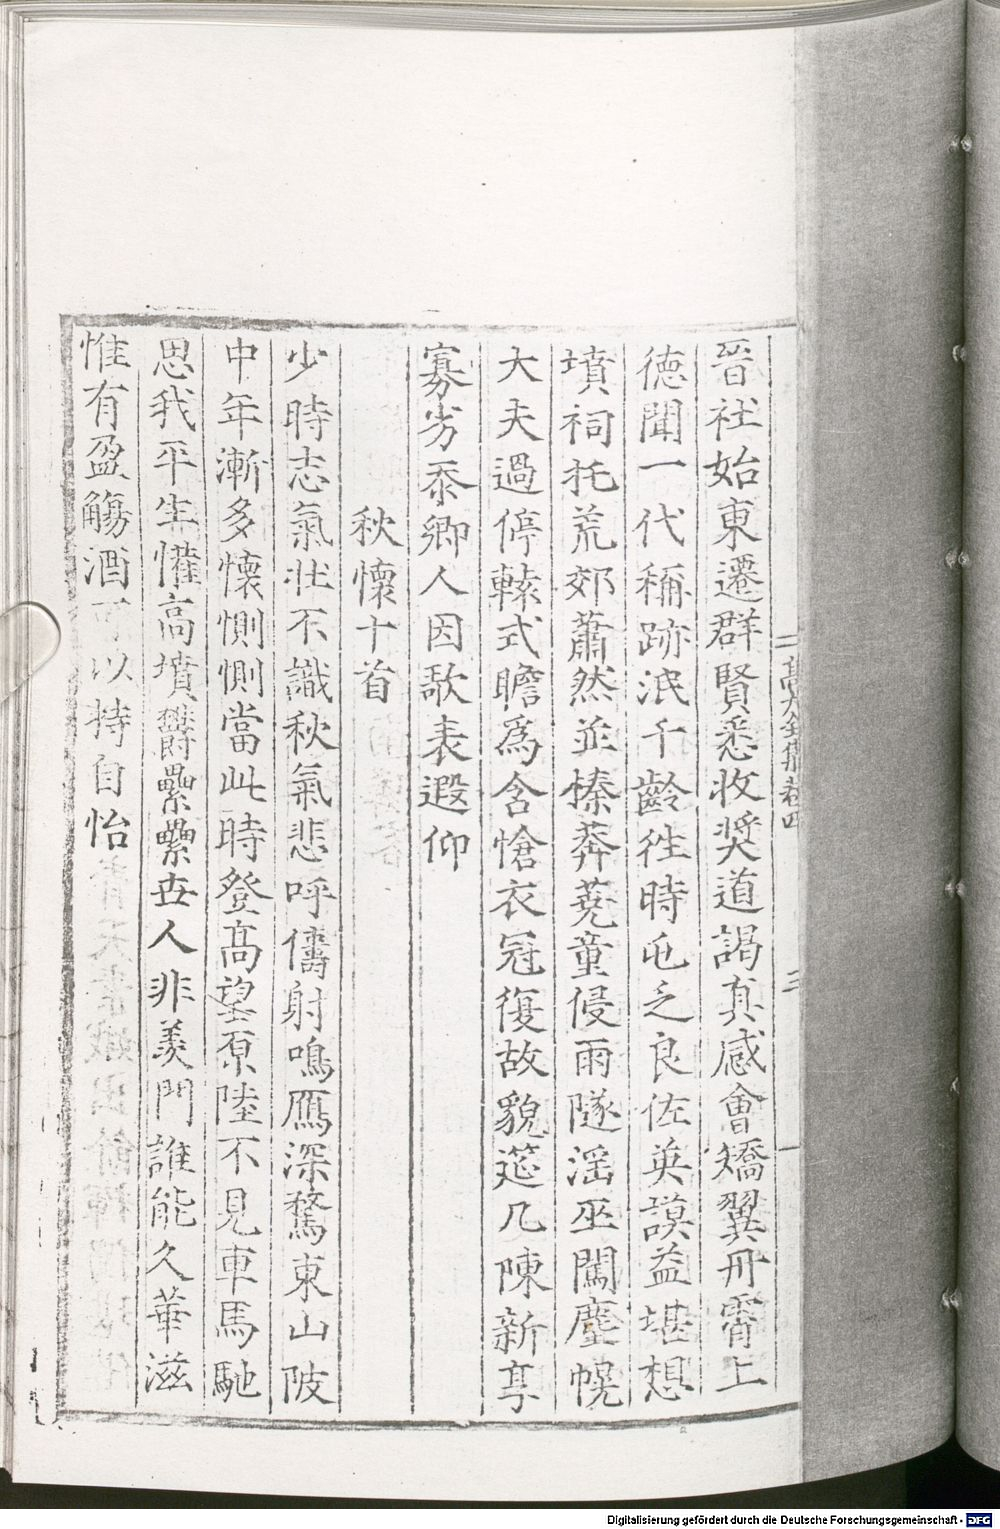 高太史大全集卷四
三
晉社始東遷群賢悉收奬道謁真感會矯翼丹霄上
徳聞一代稱跡泯千齡徃時屯乏良佐英謨益堪想
墳祠托荒郊蕭然並榛莽蕘童侵雨隧滛巫闖塵幌
大夫過停轅式瞻爲含愴衣冠復故貌筵几陳新享
寡劣忝鄉人因歌表遐仰
秋懷十首
少時志氣壯不識秋氣悲呼儔射鳴鴈深騖東山陂
中年漸多懷惻惻當此時登髙望原陸不見車馬馳
思我平生懽高墳欝纍纍丗人非羨門誰能久華滋
惟有盈觴酒可以持自怡
Digitalisierung gefördert durch die Deutsche Forschungsgemeinschaft - DFG